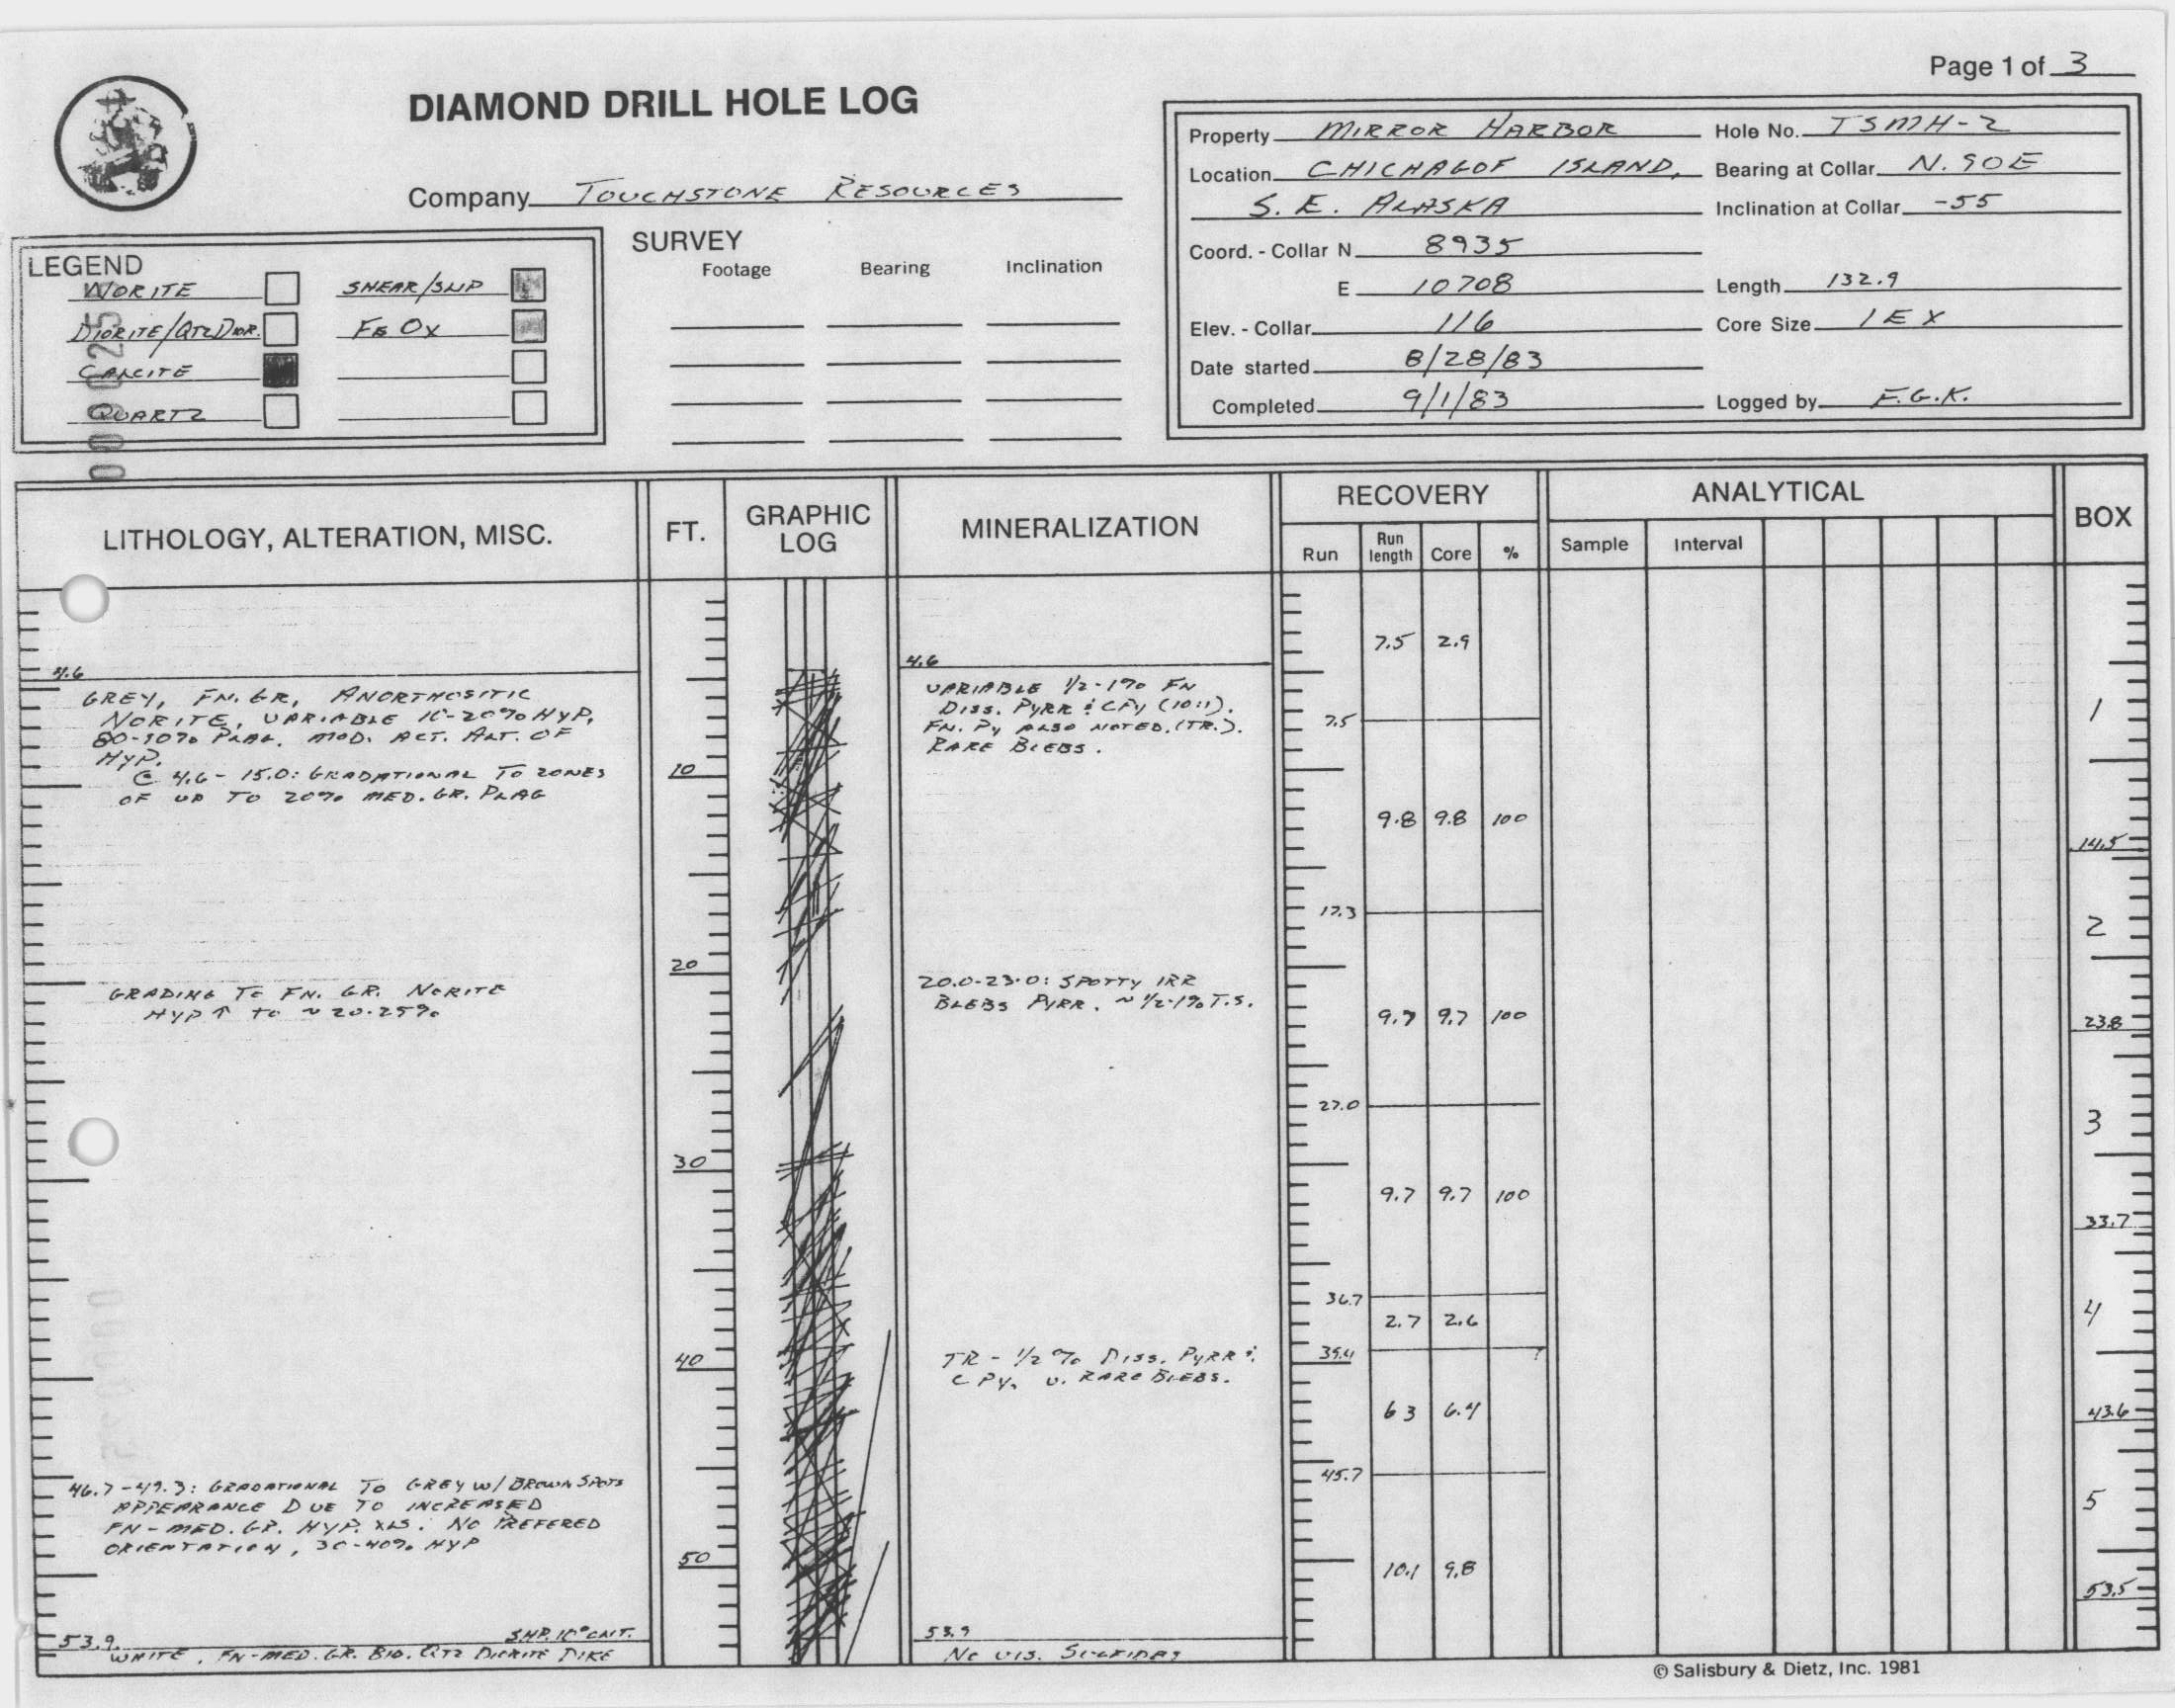 Page 1 of 3
DIAMOND DRILL HOLE LOG
Company TOUCHSTONE RESOURCES
Property MIRROR HARBOR
Hole No. TSMH-2
Location CHICHAGOF ISLAND,
Bearing at Collar N. 90E
S. E. ALASKA
Inclination at Collar -55
Coord. - Collar N 8935
E 10708
Length 132.9
Elev. - Collar 116
Core Size IEX
Date started 8/28/83
Completed 9/1/83
Logged by F.G.K.
LEGEND
NORITE
SHEAR/SLIP
DIORITE/QTZ DIOR.
FE OX
CALCITE
QUARTZ
000025
SURVEY
Footage Bearing Inclination
LITHOLOGY, ALTERATION, MISC.
FT.
GRAPHIC
LOG
MINERALIZATION
RECOVERY
Run
Run
length
Core
%
ANALYTICAL
Sample
Interval
BOX
4.6
GREY, FN. GR, ANORTHOSITIC
NORITE, VARIABLE 10-20% HYP,
80-90% PLAG. MOD. ACT. ALT. OF
HYP.
@ 4.6 - 15.0: GRADATIONAL TO ZONES
OF UP TO 20% MED. GR. PLAG
GRADING TO FN. GR. NORITE
HYP ↑ TO ~ 20-25%
46.7-49.3: GRADATIONAL TO GREY W/ BROWN SPOTS
APPEARANCE DUE TO INCREASED
FN-MED. GR. HYP. XLS. NO PREFERED
ORIENTATION, 30-40% HYP
SHP. 10° CNT.
53.9
WHITE, FN-MED. GR. BIO. QTZ DIORITE DIKE
10
20
30
40
50
4.6
VARIABLE 1/2-1% FN
DISS. PYRR & CPY (10:1).
FN. PY ALSO NOTED. (TR.).
RARE BLEBS.
20.0-23.0: SPOTTY IRR
BLEBS PYRR. ~ 1/2-1% T.S.
TR - 1/2 % DISS. PYRR &
CPY, V. RARE BLEBS.
53.9
NO VIS. SULFIDES
7.5 2.9
7.5
9.8 9.8 100
17.3
9.7 9.7 100
27.0
9.7 9.7 100
36.7
2.7 2.6
39.4
6 3 6.4
45.7
10.1 9.8
1
14.5
2
23.8
3
33.7
4
43.6
5
53.5
© Salisbury & Dietz, Inc. 1981